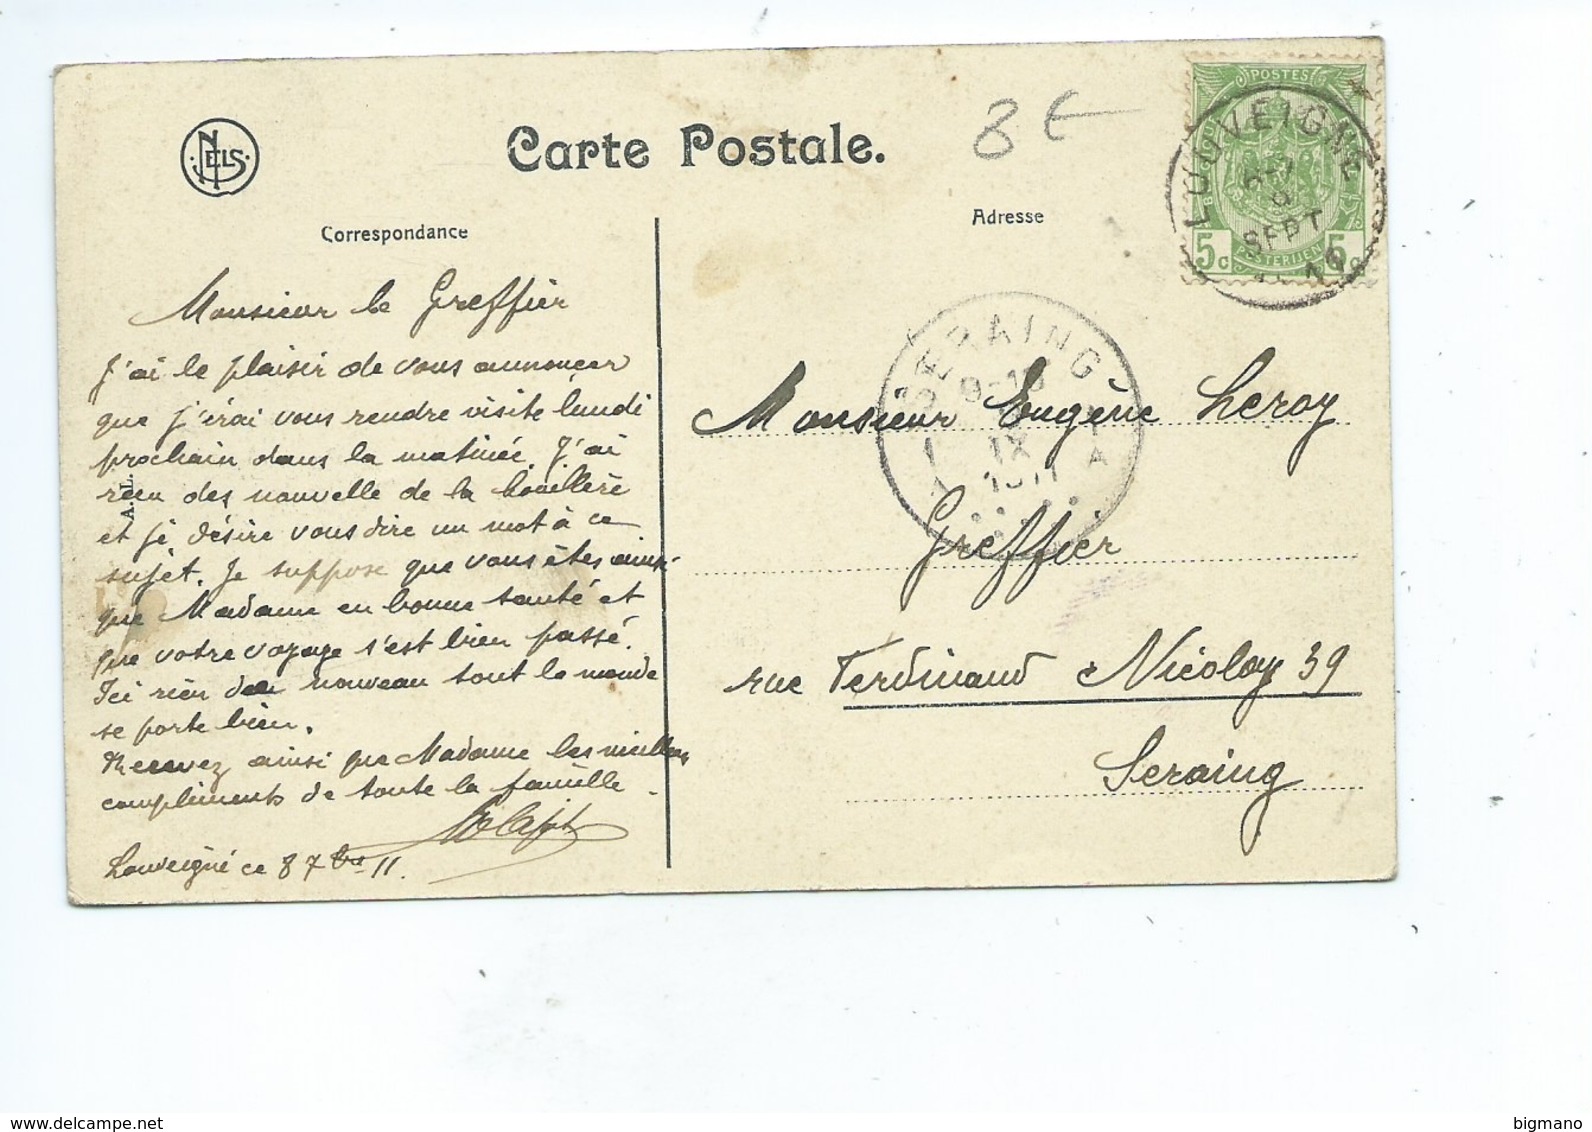 NELS
Carte Postale.
8 €
POSTES
BELGIQUE
5c
POSTERIJEN
5c
LOUVEIGNE
8
SEPT
Correspondance
Adresse
SERAING
9-10
IX
1911
A
Monsieur le Greffier
J'ai le plaisir de vous annoncer
que j'irai vous rendre visite lundi
prochain dans la matinée. J'ai
reçu des nouvelle de la houillère
et je désire vous dire un mot à ce
sujet. Je suppose que vous êtes ainsi
que Madame en bonne santé et
que votre voyage s'est bien passé.
Ici rien de nouveau tout le monde
se porte bien.
Recevez ainsi que Madame les meilleurs
compliments de toute la famille.
Louveigné ce 8 7bre 11.
A. L.
Monsieur Eugène Leroy
Greffier
rue Ferdinand Nicolay 39
Seraing
delcampe.net
bigmano